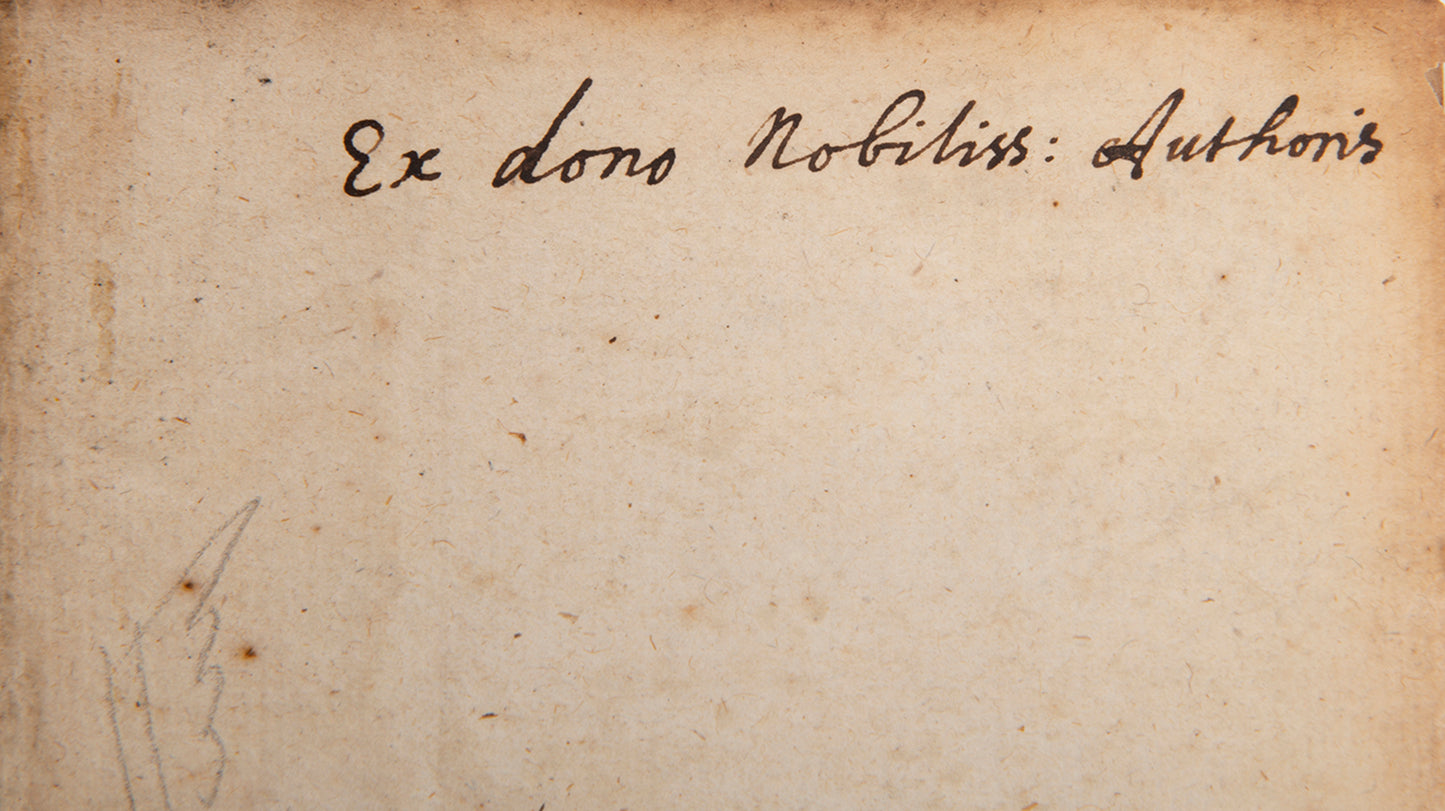 Ex dono Nobiliss: Authoris